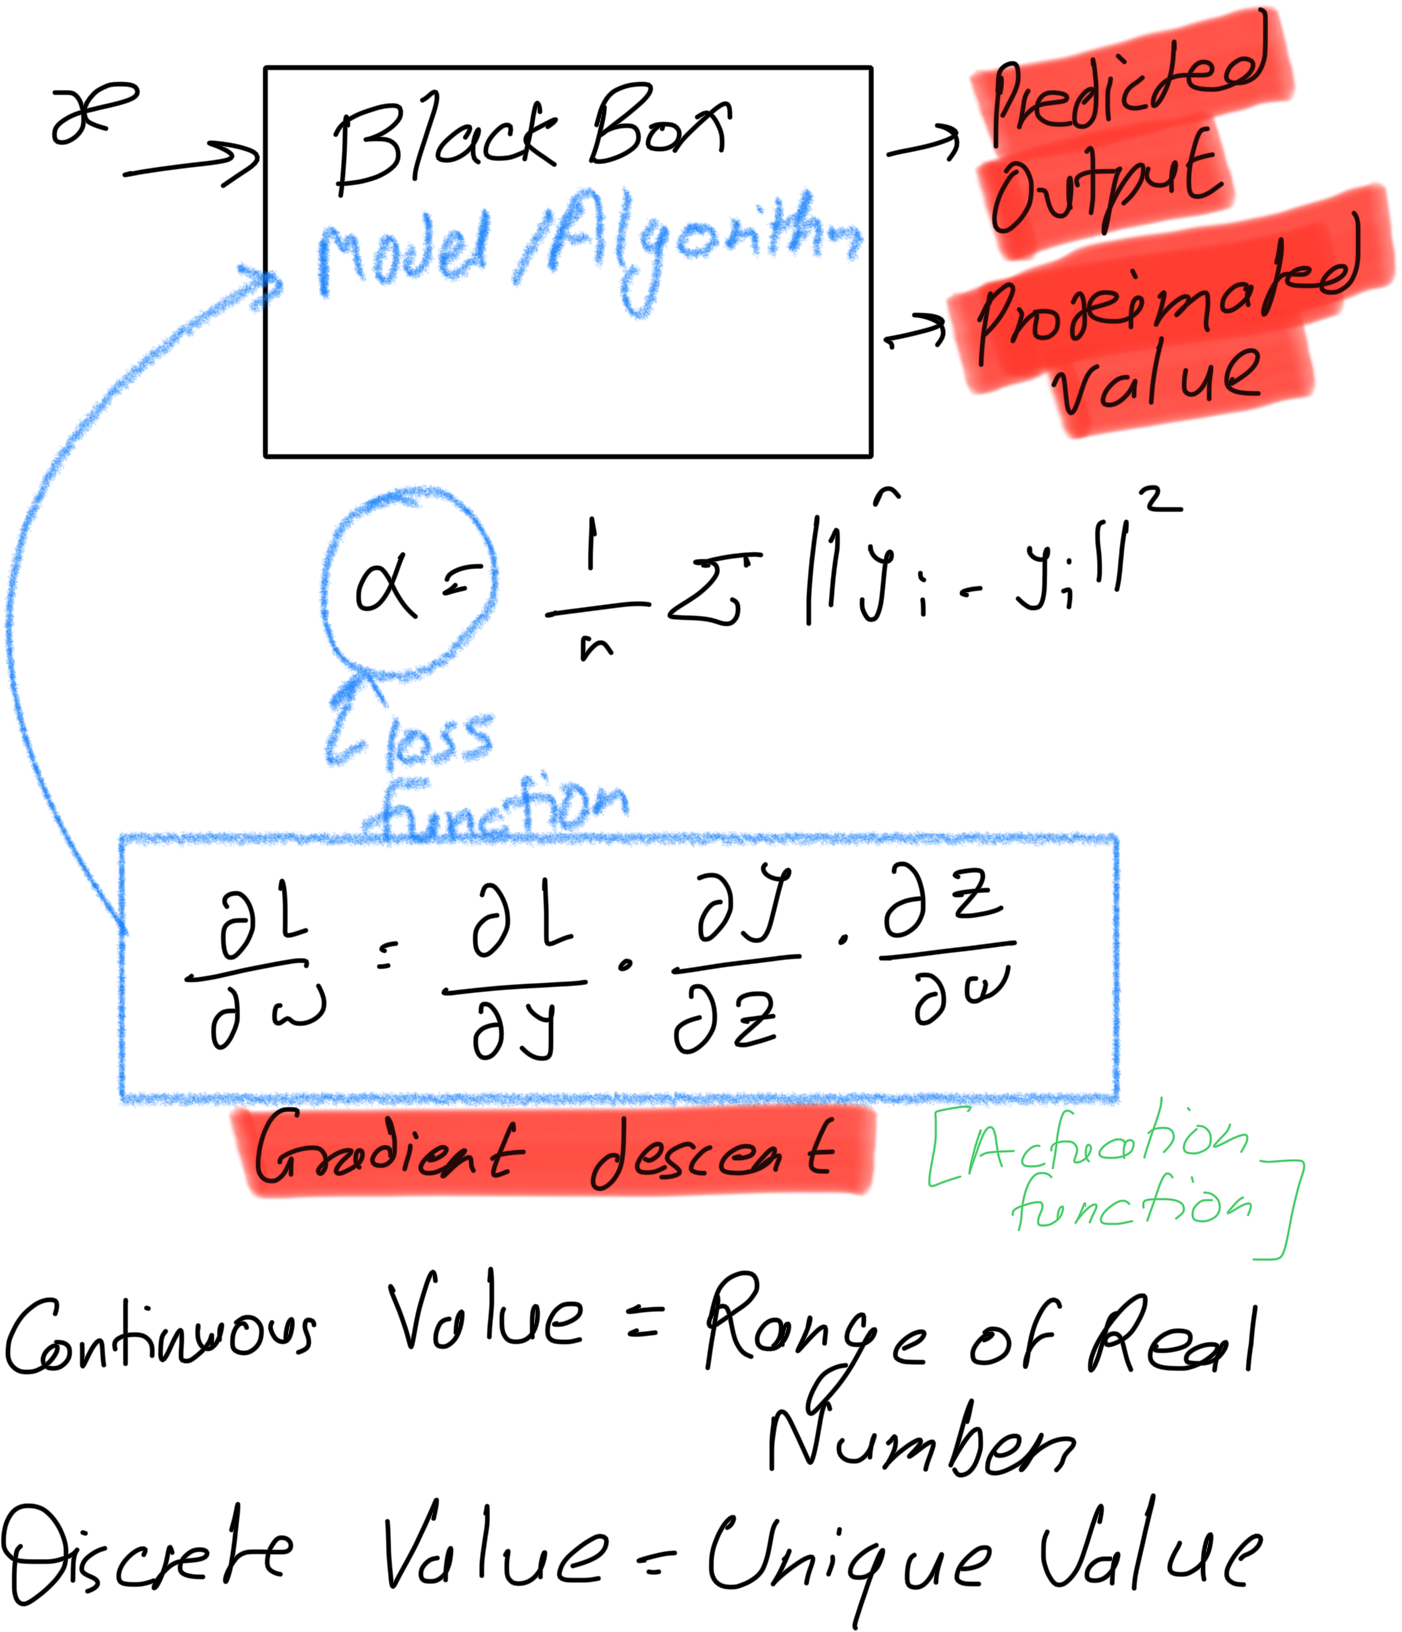 x
Black Box
Model/Algorithm
Predicted
Output
Proximated
value
α = 1/n Σ ||ŷᵢ - yᵢ||²
loss
function
∂L/∂w = ∂L/∂y · ∂y/∂z · ∂z/∂w
Gradient descent
[Activation
function]
Continuous Value = Range of Real
Number
Discrete Value = Unique Value